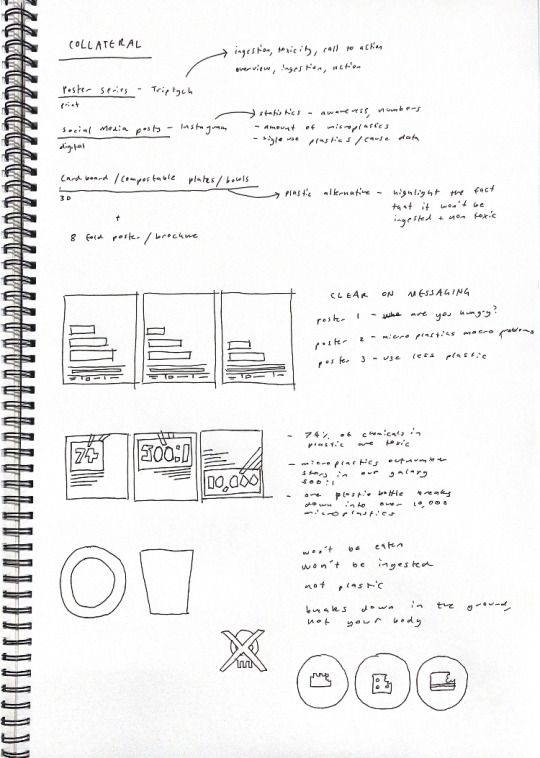 COLLATERAL
ingestion, toxicity, call to action
overview, ingestion, action
Poster series - Triptych
print
Social Media posts - Instagram
digital
statistics - awareness, numbers
- amount of microplastics
- single use plastics / cause data
Cardboard / compostable plates / bowls
3D
plastic alternative - highlight the fact
that it won't be
ingested + non toxic
+
8 fold poster / brochure
CLEAR ON MESSAGING
poster 1 - are you hungry?
poster 2 - micro plastics macro problems
poster 3 - use less plastic
74
500:1
10,000
- 74% of chemicals in
plastic are toxic
- microplastics outnumber
stars in our galaxy
500:1
- one plastic bottle breaks
down into over 10,000
microplastics
won't be eaten
won't be ingested
not plastic
breaks down in the ground,
not your body